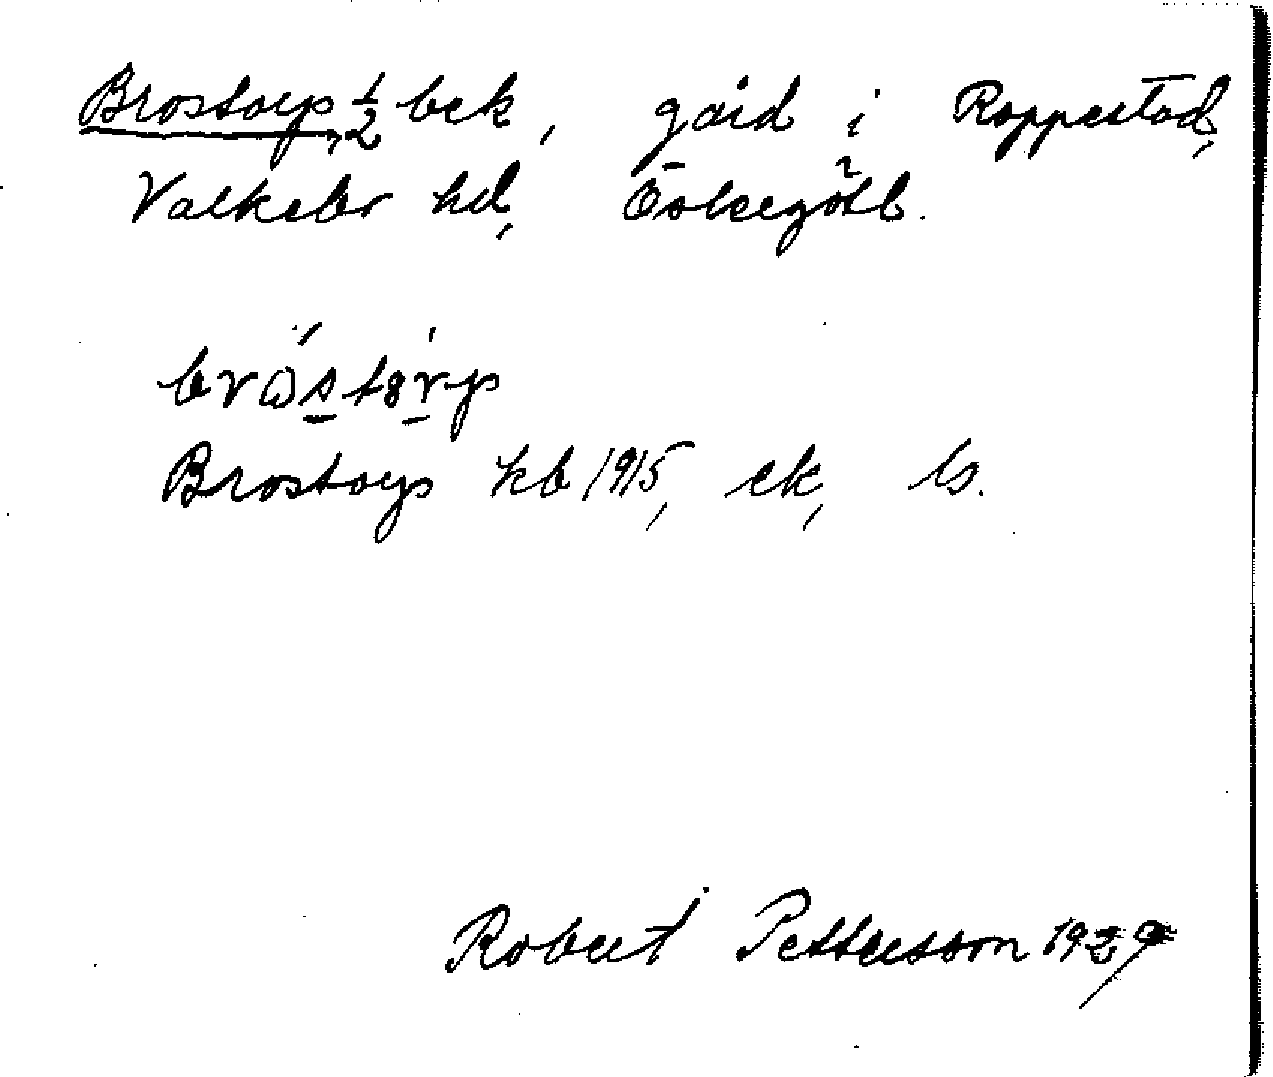 Brostorp, 1/2 bek, gård i Rappestad,
Valkebo hd, Östergötl.
Brostorp kb 1915, ek, ls.
Robert Pettersson 1929